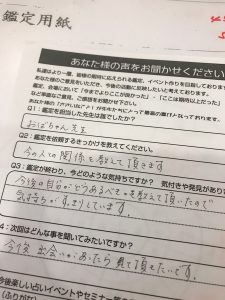 鑑定用紙
あなたの声をお聞かせください
私達はより一層、皆様の期待に応えられる鑑定、イベント作りを目指しております
あなた様のご意見をいただき、今後の活動に反映したいと考えております。
鑑定、会場において「今までよりここが良かった」、「ここは期待以上だった」
など率直なご意見、ご感想をお聞かせ下さい。
Q1：鑑定を担当した先生は誰でしたか？
おばちゃん先生
Q2：鑑定を依頼するきっかけを教えてください。
今の人との関係を教えて頂きます
Q3：鑑定が終わり、今どのような気持ちですか？ 気付きや発見があり
今後の自分がどうあるべきかを教えて頂いたので
気持ちがすっきりしています。
4：次回はどんな事を聞いてみたいですか？
今後出会いがあったら見て頂きたいです。
今後楽しい占いイベントやセミナー
(ふりがな)